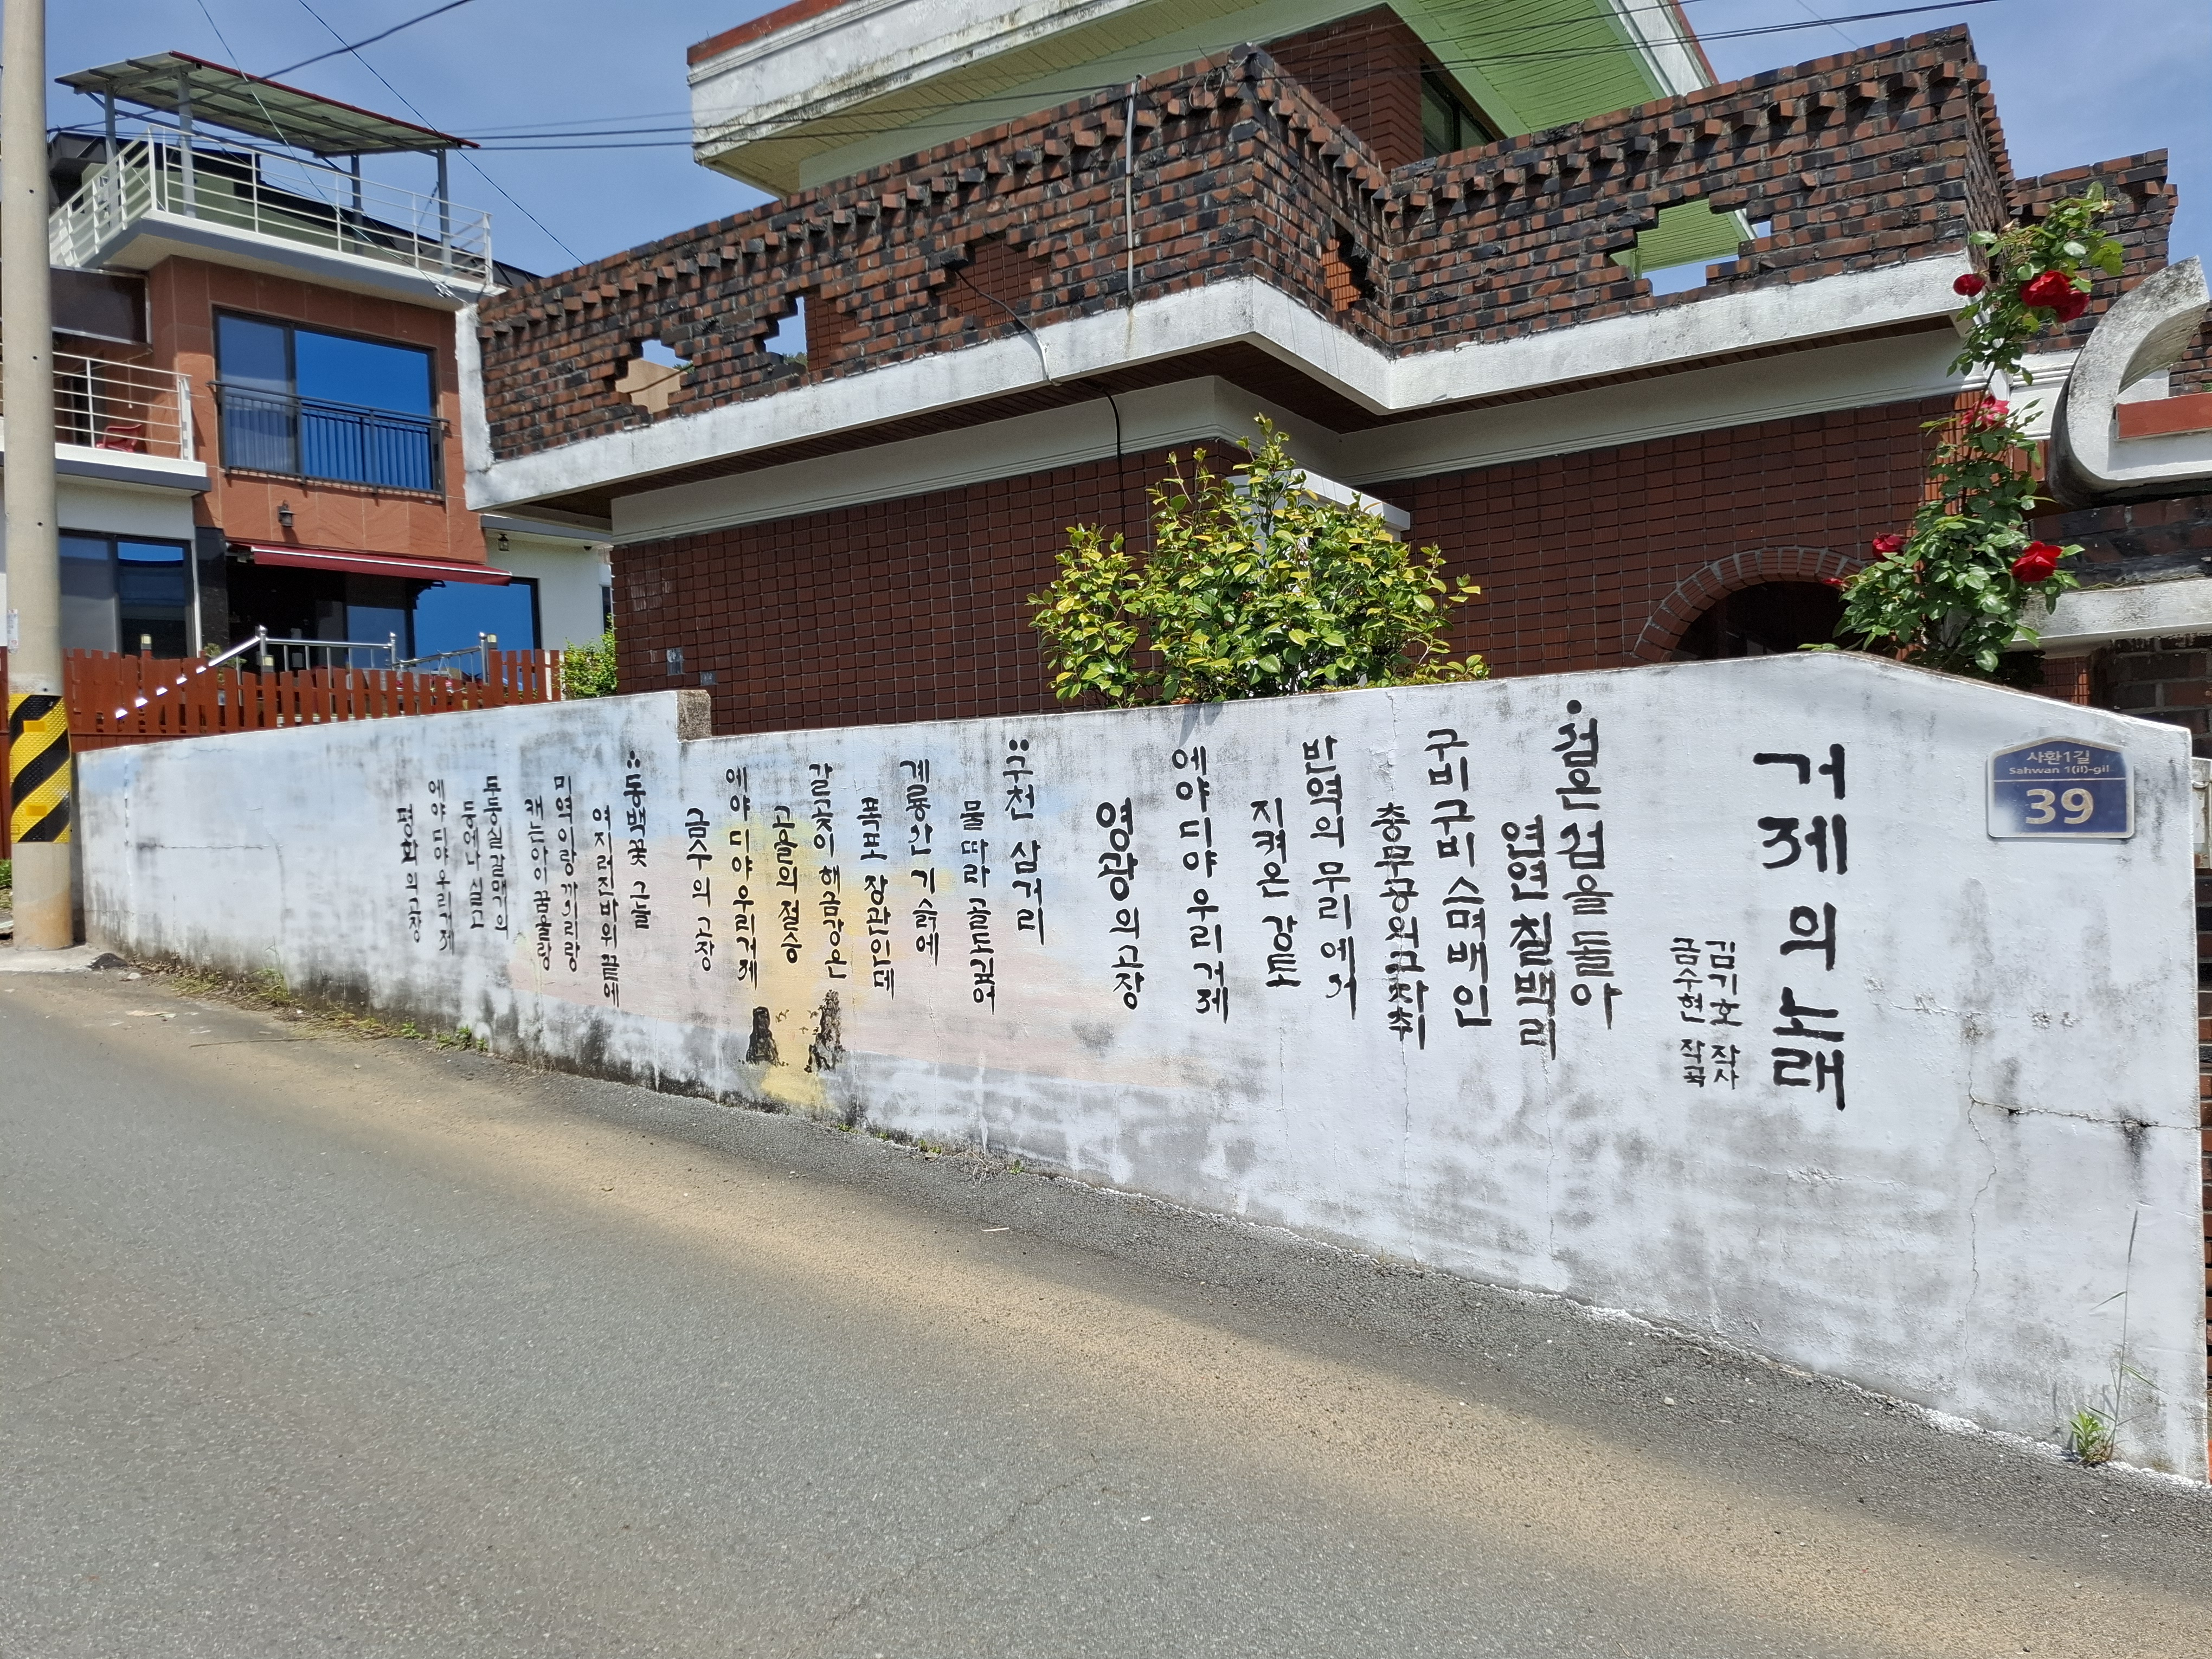 사환1길
Sahwan 1(il)-gil
39
거제의 노래
김기호 작사
금수현 작곡
섬은 섬을 돌아
연연 칠백리
구비구비 스며배인
충무공의 그자취
반역의 무리에서
지켜온 강토
에야 디야 우리거제
영광의 고장
구천 삼거리
물따라 골도깊어
계룡산 기슭에
폭포 장관인데
갈곶이 해금강은
고을의 절승
에야 디야 우리거제
금수의 고장
동백꽃 그늘
여지러진바위끝에
미역이랑 까시리랑
캐는아이꿈을랑
두둥실갈매기의
등에나 실고
에야 디야 우리거제
평화의고장